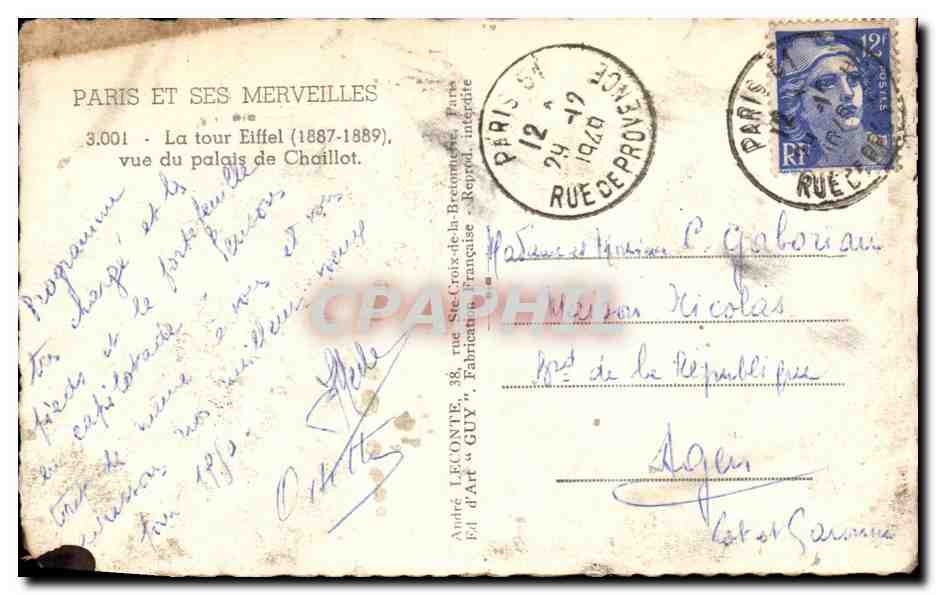 PARIS ET SES MERVEILLES
3.001 - La tour Eiffel (1887-1889),
vue du palais de Chaillot.
Programme
très chargé, et les
pieds et le portefeuille
en capilotade. Pensons
tout de même à vous et vous
adressons nos meilleurs vœux
pour 1950.
André LECONTE, 38, rue Ste-Croix-de-la-Bretonnerie, Paris
Ed d'Art "GUY". Fabrication Française - Reprod. interdite
PARIS
12
29 -12
1949
RUE DE PROVENCE
12F
POSTES
RF
PARIS
12
RUE DE PR
Madame et Monsieur P. Gaborian
Maison Nicolas
Bd de la République
Agen
Lot et Garonne
CPAPHIL